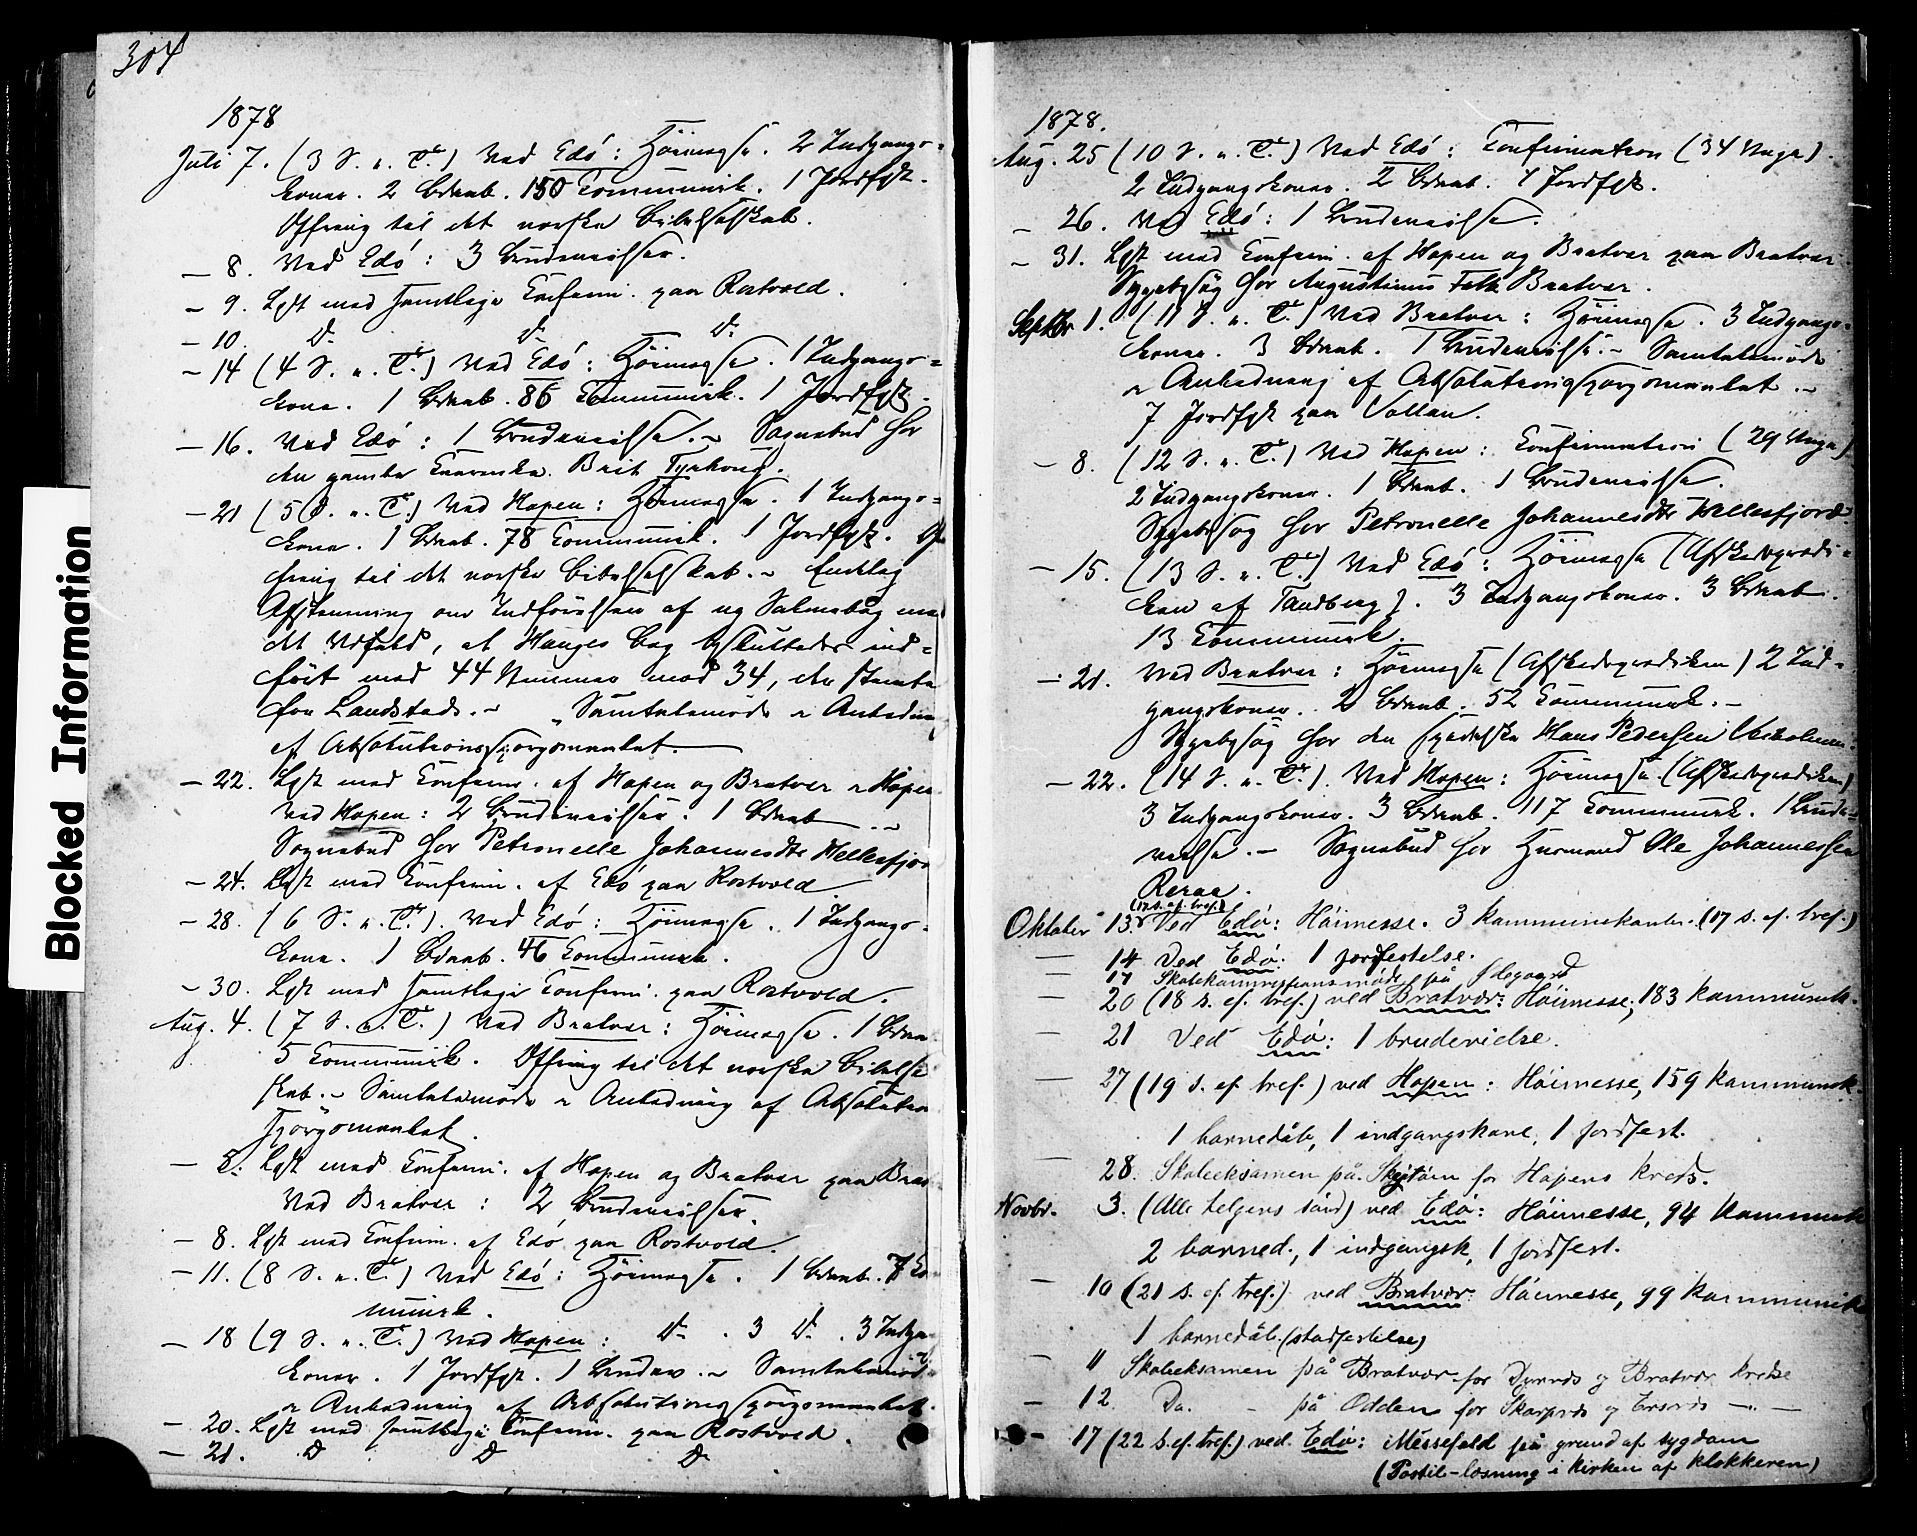 304
1878
Juli 7. (3 S. e. Tr.) Ved Edö: Höimesse. 2 Indgangs-
koner. 2 Børneb. 150 Communik. 1 Jordfest.
Offring til det norske Bibelselskab.
— 8. Ved Edö: 3 Brudevielser.
— 9. Læst med samtlige Confirm. paa Rostvold.
— 10. Do Do Do
— 14 (4 S. e. Tr.) Ved Edö: Höimesse. 1 Indgangs-
kone. 1 Børneb. 86 Communik. 1 Jordfest.
— 16. Ved Edö: 1 Brudevielse. — Sognebud hos
den gamle Brit Tyrhoug.
— 21 (5 S. e. Tr.) Ved Hopen: Höimesse. 1 Indgangs-
kone. 1 Børneb. 78 Communik. 1 Jordfest. Of-
fring til det norske Bibelselskab. — Endelig
Afstemning om Indförelsen af ny Salmebog med
det Udfald, at Hauges Bog besluttedes ind-
fört med 44 Stemmer mod 34, der stemte
for Landstads. — Samtalemöde i Anledning
af Absolutionsspörgsmaalet.
— 22. Læst med Confirm. af Hopen og Bratvær i Hopen
Ved Hopen: 2 Brudevielser. 1 Børneb. —
Sognebud hos Petronelle Johannesdtr Hellesfjord
— 24. Læst med Confirm. af Edö paa Rostvold
— 28. (6 S. e. Tr.). Ved Edö: Höimesse. 1 Indgangs-
kone. 1 Børneb. 46 Communik.
— 30. Læst med samtlige Confirm. paa Rostvold.
Aug. 4. (7 S. e. Tr.) Ved Bratvær: Höimesse. 1 Børneb.
5 Communik. Offring til det norske Bibelsel-
skab. — Samtalemöde i Anledning af Absolutions
spörgsmaalet.
Læst med Confirm. af Hopen og Bratvær paa Brat
Ved Bratvær: 2 Brudevielser.
— 8. Læst med Confirm. af Edö paa Rostvold.
— 11. (8 S. e. Tr.) Ved Edö: Höimesse. 1 Børneb. 7 Com
munik.
— 18 (9 S. e. Tr.) Ved Hopen: Do. 3 Do. 3 Indgangs
koner. 1 Jordfest. 1 Brudev. — Samtalemöde
i Anledning af Absolutionsspörgsmaalet.
— 20. Læst med samtlige Confirm. paa Rostvold.
— 21. Do Do Do
1878.
Aug. 25 (10 S. e. Tr.) Ved Edö: Confirmation (34 Unge).
2 Indgangskoner. 2 Børneb. 1 Jordfest.
— 26. Ved Edö: 1 Brudevielse.
— 31. Læst med Confirm. af Hopen og Bratvær paa Bratvær
Sygebesög hos Augustinus Falk Bratvær.
Septbr 1. (11 S. e. Tr.) Ved Bratvær: Höimesse. 3 Indgangs-
koner. 3 Børneb. 1 Brudevielse. — Samtalemöde
i Anledning af Absolutionsspörgsmaalet. —
7 Jordfest paa Vollan.
— 8. (12 S. e. Tr.) Ved Hopen: Confirmation (29 Unge)
2 Indgangskoner. 1 Børneb. 1 Brudevielse.
Sygebesög hos Petronelle Johannesdtr Hellesfjord.
— 15. (13 S. e. Tr.) Ved Edö: Höimesse (Afskedsprædi-
ken af Tandberg). 3 Indgangskoner. 3 Børneb.
13 Communik.
— 21. Ved Bratvær: Höimesse (Afskedsprædiken) 2 Ind-
gangskoner. 2 Børneb. 52 Communik. —
Sygebesög hos den spedalske Hans Pedersen
— 22. (14 S. e. Tr.). Ved Hopen: Höimesse. (Afskedsprædiken)
3 Indgangskoner. 3 Børneb. 117 Communik. 1 Brude-
vielse. — Sognebud hos Husmand Ole Johannessen
Reraa.
(17 s. ef. tref.)
Oktober 13 Ved Edö: Höimesse. 3 kommunikanter. (17 s. ef. tref.)
— 14 Ved Edö: 1 jordfestelse.
17 Skolekommissionsmöde på Ödegaard
— 20 (18 s. ef. tref.) ved Bratvær: Höimesse, 183 kommunik.
— 21 Ved Edö: 1 brudevielse.
— 27 (19 s. ef. tref.) ved Hopen: Höimesse, 159 kommunik.
1 barnedåb, 1 indgangskone, 1 jordfest.
— 28. Skoleeksamen på for Hopens kreds.
Novbr. 3. (Alle helgens sönd) ved Edö: Höimesse, 94 kommunik
2 barned., 1 indgangsk, 1 jordfest.
— 10 (21 s. ef. tref.) ved Bratvær: Höimesse, 99 kommunik
1 barnedåb (stadfestelse)
— 11 Skoleeksamen på Bratvær for Dyrnes og Bratvær kredse
— 12. Do. — på Odden for Skarpnes og Ersnes — . —
— 17 (22 s. ef. tref.) ved Edö: Messefald på grund af sygdom
(Postil-læsning i kirken af klokkeren)
Blocked Information